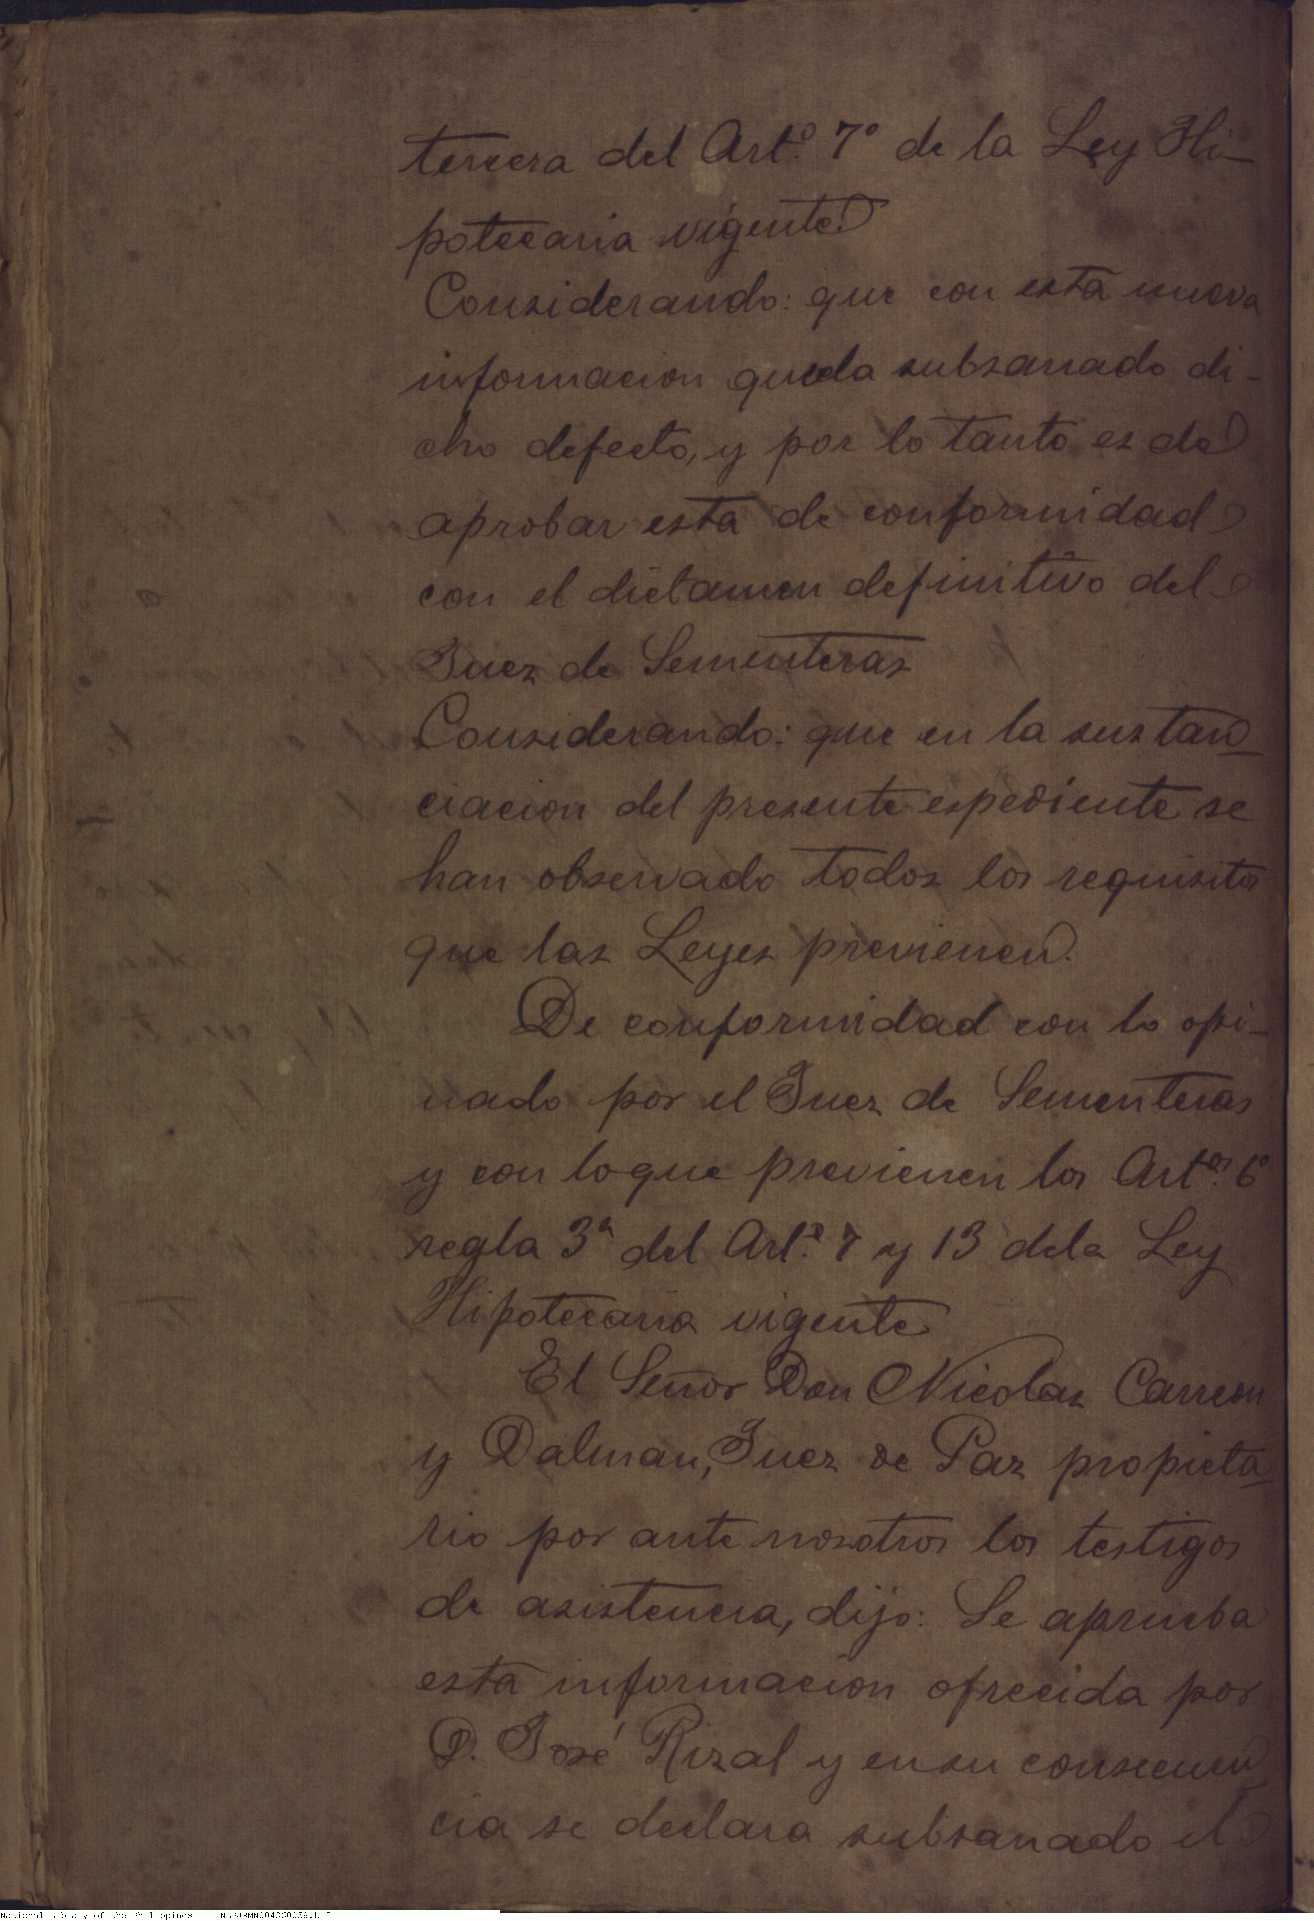 tercera del Art.º 7º de la Ley Hi-
potecaria vigente.
Considerando: que con esta nueva
informacion queda subsanado di-
cho defecto, y por lo tanto es de
aprobar esta de conformidad
con el dictamen definitivo del
Juez de Sementeras
Considerando: que en la sustan-
ciacion del presente espediente se
han observado todos los requisitos
que las Leyes previenen.
De conformidad con lo opi-
nado por el Juez de Sementeras
y con lo que previenen los Art.os 6º
regla 3ª del Art.º 7 y 13 dela Ley
Hipotecaria vigente
El Señor Don Nicolas Carreon
y Dalman, Juez de Paz propieta-
rio por ante nosotros los testigos
de asistencia, dijo: Se aprueba
esta informacion ofrecida por
D. José Rizal y en su consecuen-
cia se declara subsanado el
National Library of the Philippines